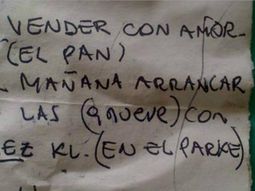 VENDER CON AMOR-
(EL PAN)
MAÑANA ARRANCAR
LAS (9 NUEVE) CON
EZ KL. (EN EL PARKE)